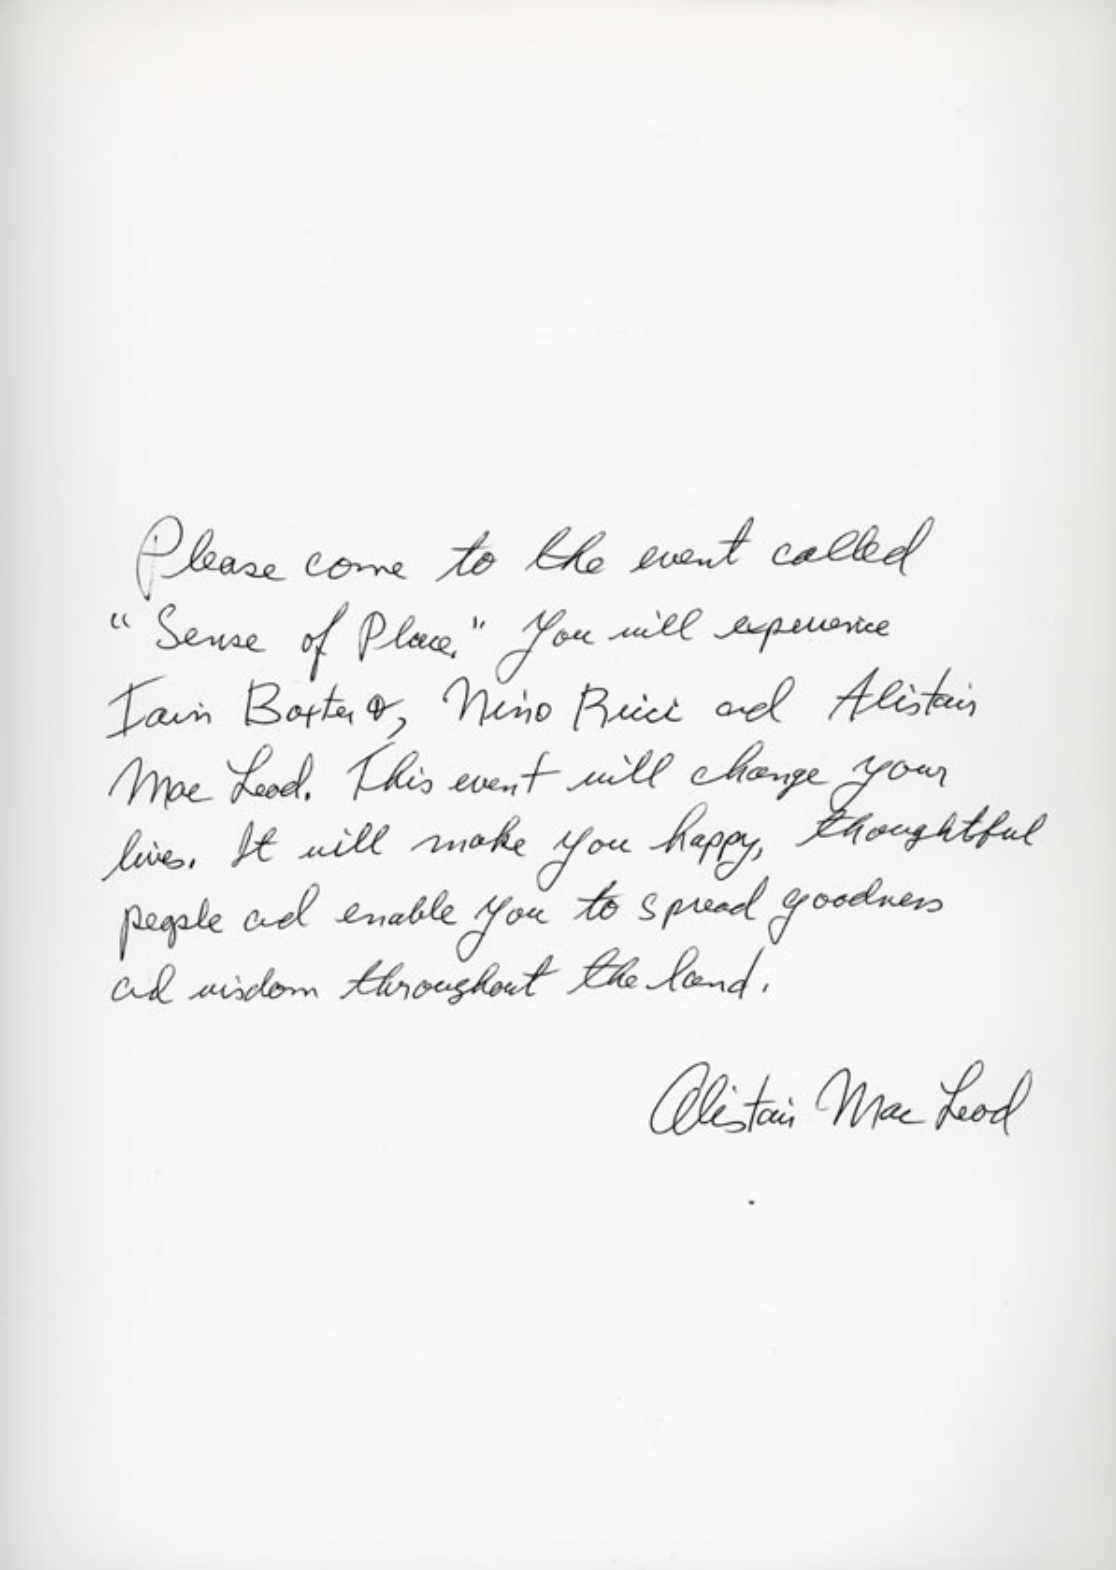 Please come to the event called
"Sense of Place." You will experience
Iain Baxter&, Nino Ricci and Alistair
MacLeod. This event will change your
lives. It will make you happy, thoughtful
people and enable you to spread goodness
and wisdom throughout the land.
Alistair MacLeod